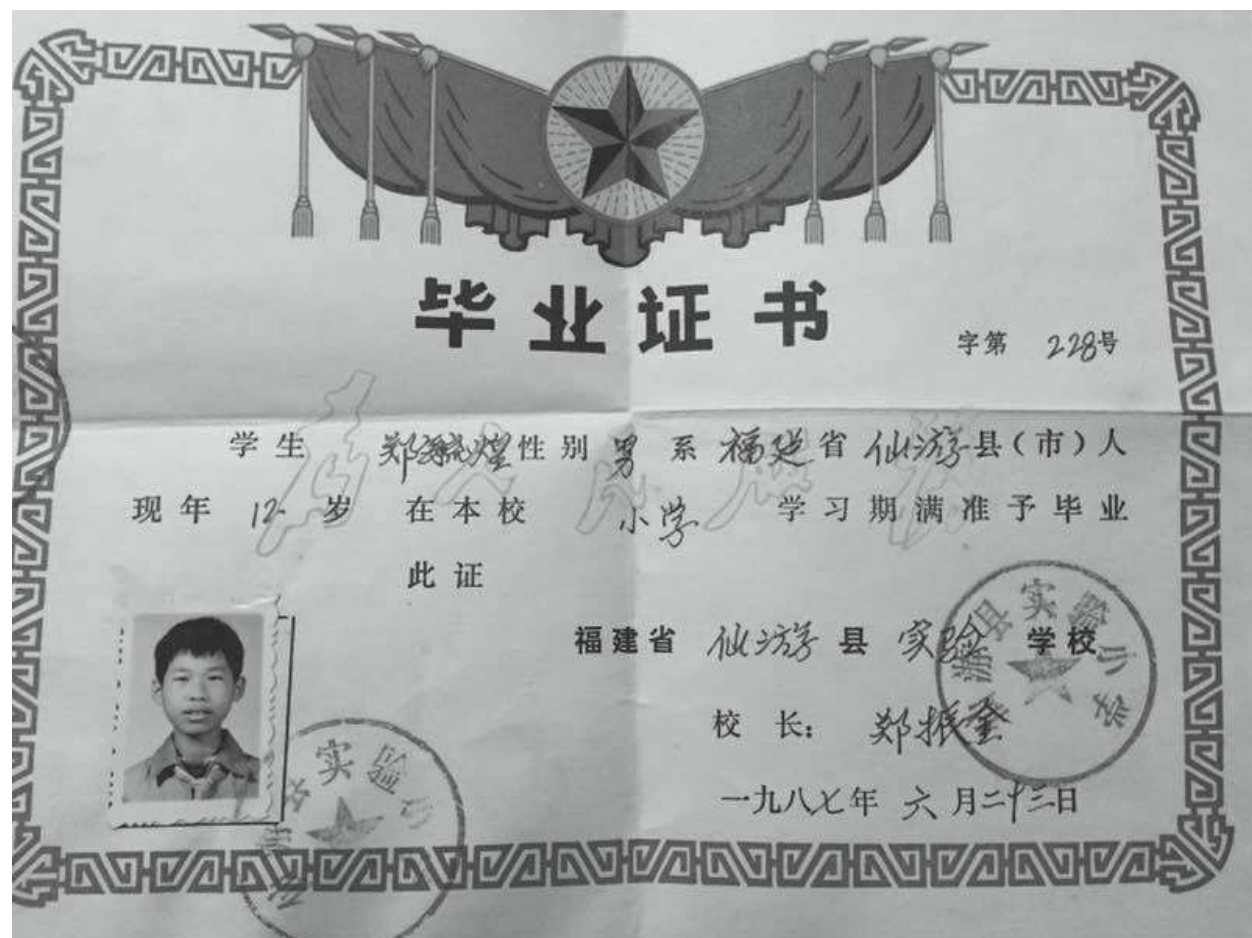 毕业证书
字第 228号
学生 郑毓煌 性别 男 系 福建省 仙游县(市)人
现年 12 岁 在本校 小学 学习期满准予毕业
此证
福建省 仙游县 实验 学校
校长: 郑振銮
一九八七年 六月二十三日
游县实验小学
实验小